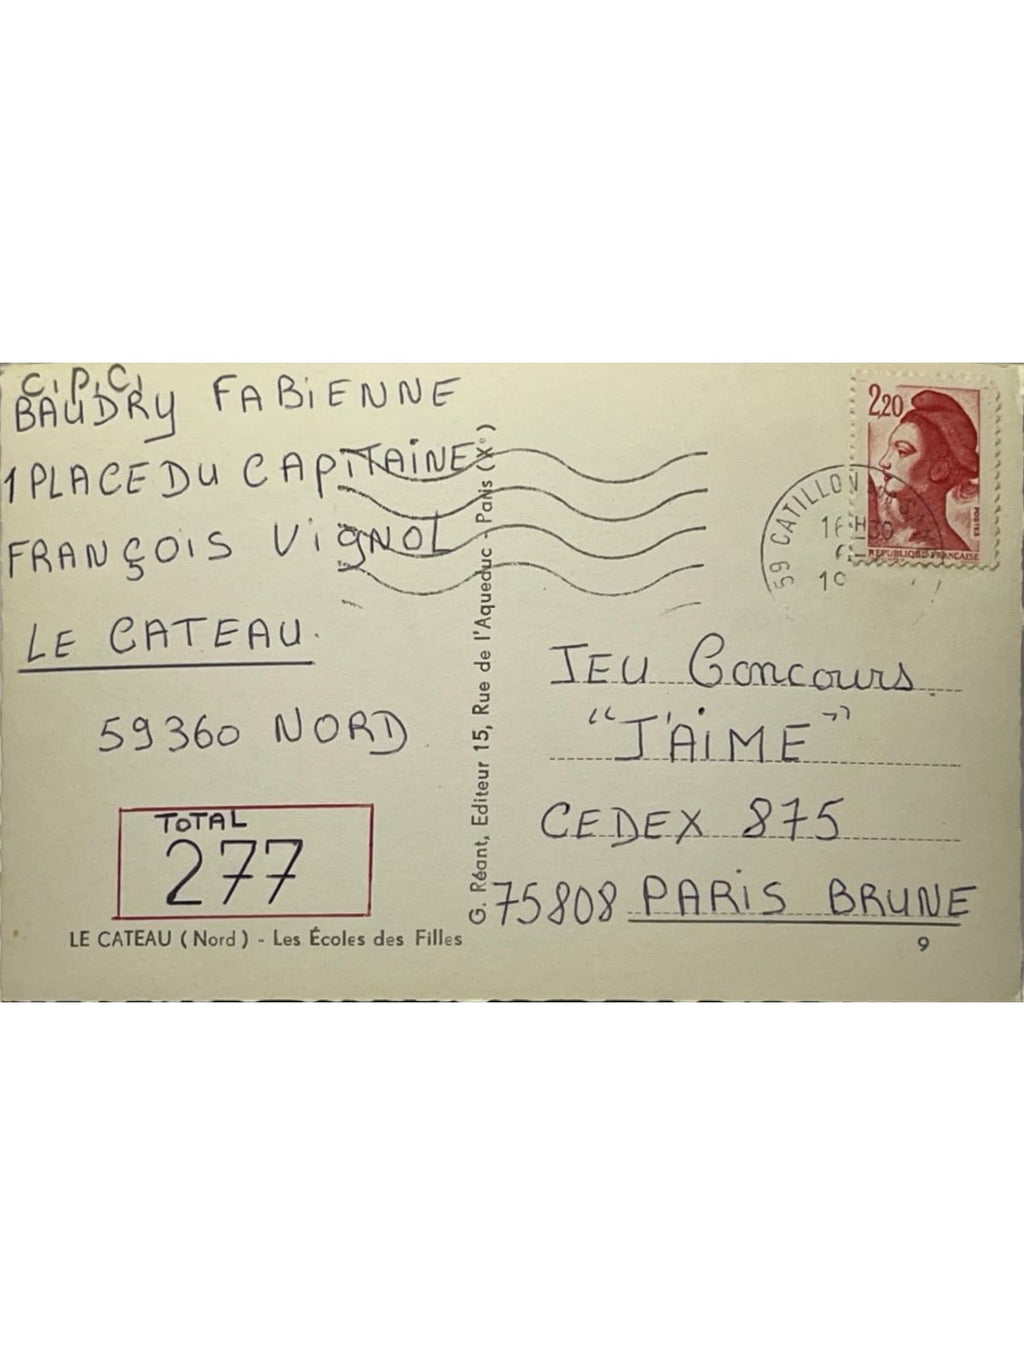 C.P.C.
BAUDRY FABIENNE
1 PLACE DU CAPITAINE
FRANÇOIS VIGNOL
LE CATEAU.
59360 NORD
TOTAL
277
LE CATEAU (Nord) - Les Écoles des Filles
G. Réant, Editeur 15, Rue de l'Aqueduc - Paris (Xe)
2,20
POSTES
REPUBLIQUE FRANÇAISE
59 CATILLON
JEU Concours
"J'AIME"
CEDEX 875
75808 PARIS BRUNE
9